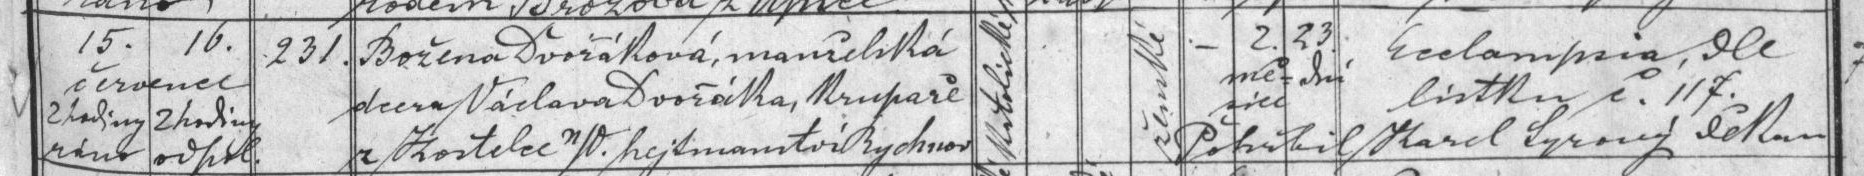 rodem Brožova z Úpice
15. 16. 231. Božena Dvořáková, manželská – 2. 23. Ecclampsia, dle
července dcera Václava Dvořáka, krupaře katolické ženské mě- dní lístku č. 117.
2 hodiny 2 hodiny síce
ráno odpol. z Kostelce n/O. hejtmanství Rychnov Pohřbil Karel Syrový děkan